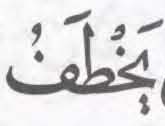 يَخْطَفُ